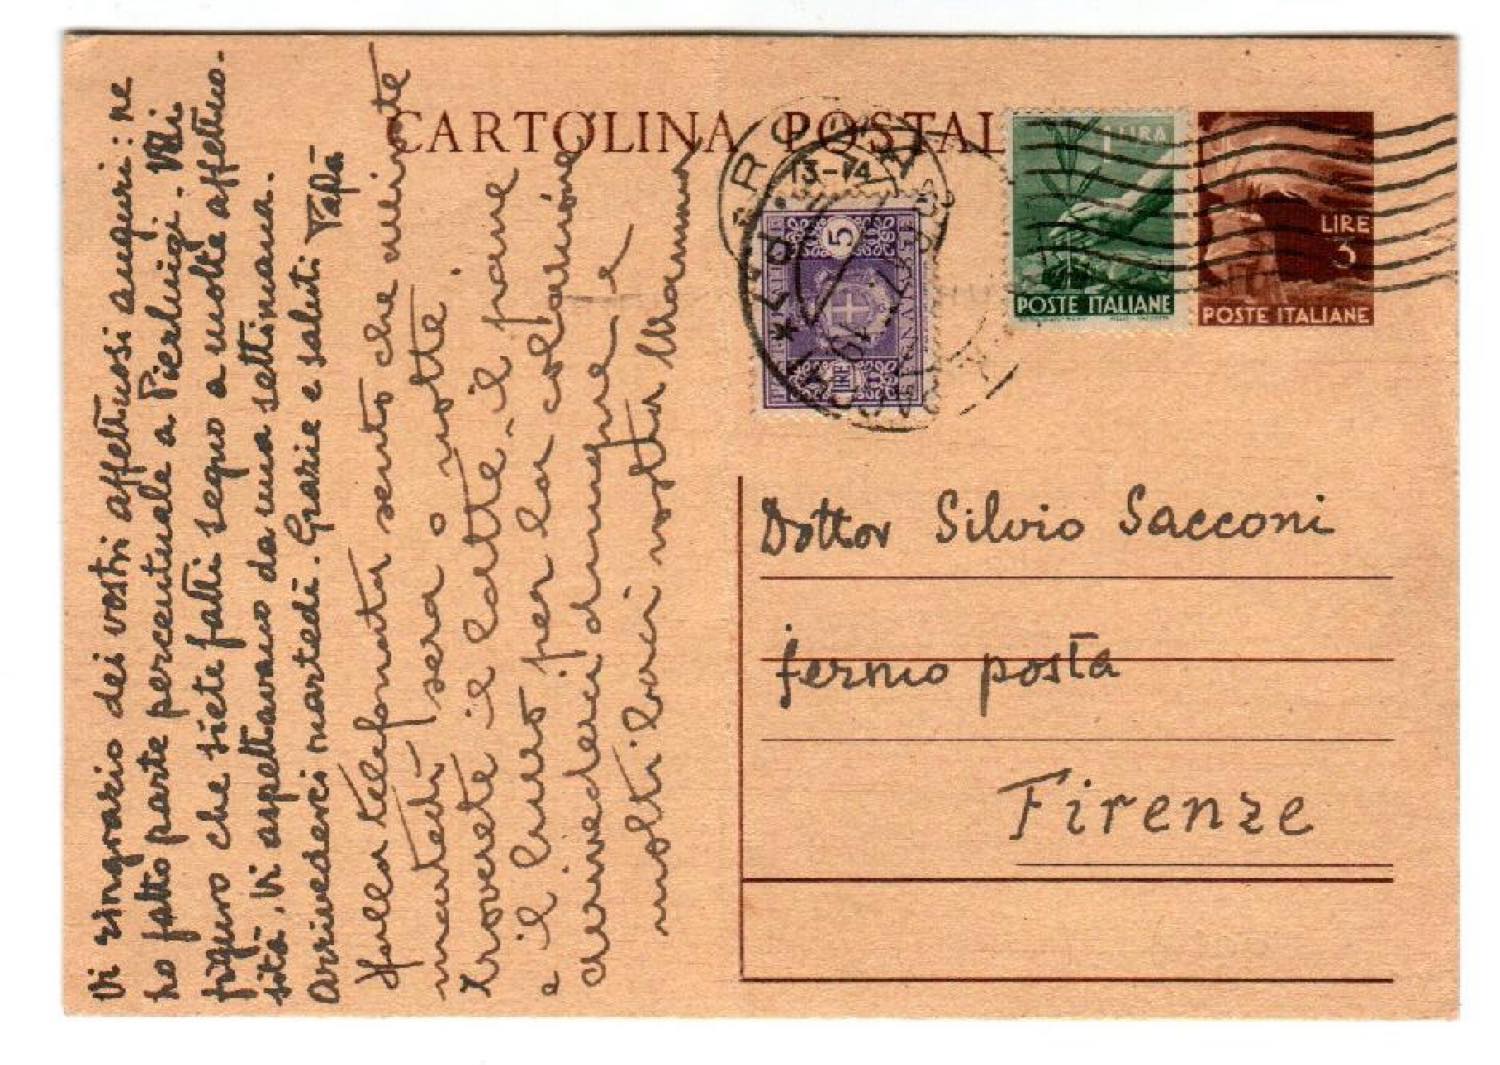 CARTOLINA POSTAL
1 LIRA
POSTE ITALIANE
LIRE
3
POSTE ITALIANE
13-14
5
LIRE
Dottor Silvio Sacconi
fermo posta
Firenze
Vi ringrazio dei vostri affettuosi auguri: ne
ho fatto parte percentuale a Pierluigi. Mi
figuro che siete fatti segno a molte affettuo-
sità. Vi aspettavamo da una settimana.
Arrivederci martedì. Grazie e saluti Papà
Dalla telefonata sento che
martedì sera o notte.
troverete il latte, il pane
e il burro per la colazione
arrivederci dunque e
molti baci vostra Mamma